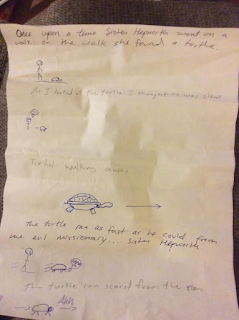 Once upon a time Sister Hepworth went on a
walk on the walk she found a turtle.
As I looked at the turtle I
Turtle walking away
The turtle ran as fast as he could from
the evil missionary... Sister Hepworth
The turtle ran scared from the
Ahh